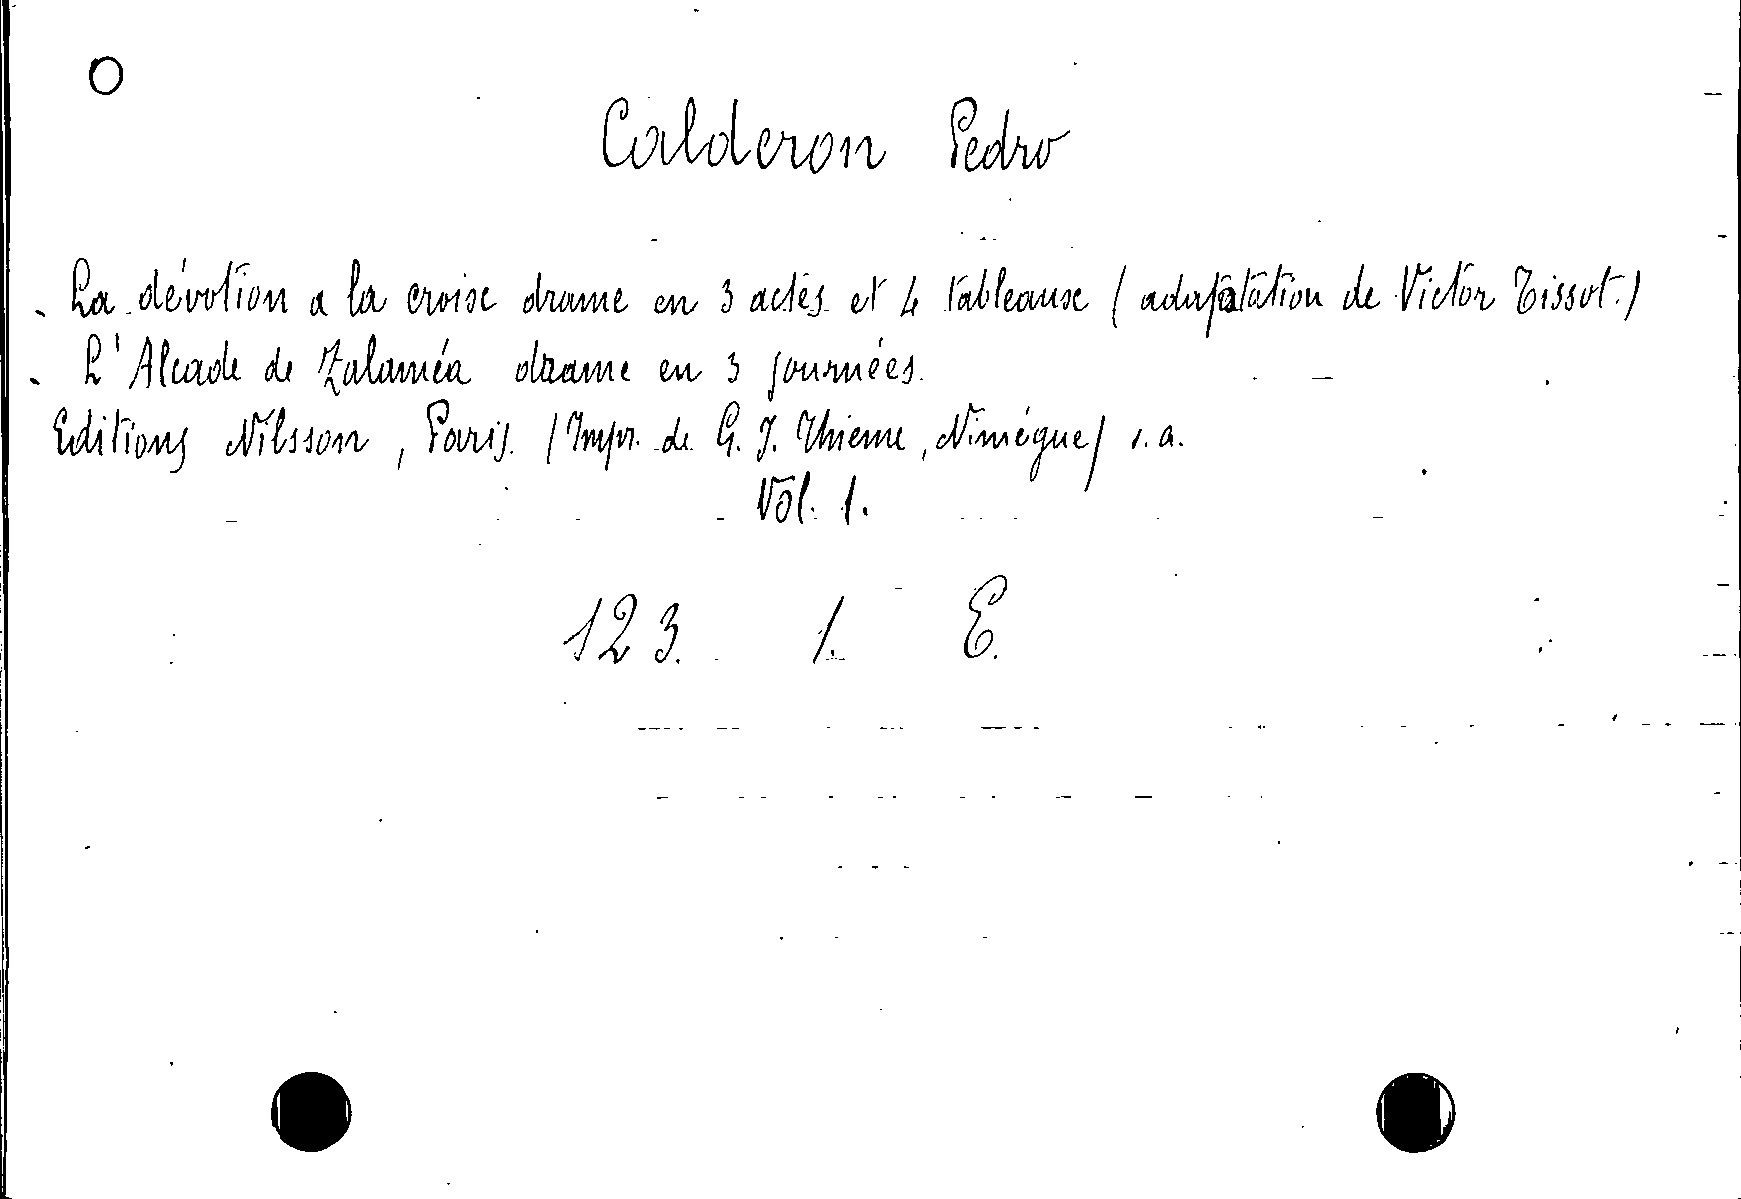 O
Calderon Pedro
- La dévotion a la croix drame en 3 actes et 4 tableaux (adaptation de Victor Tissot.)
- L'Alcade de Zalaméa drame en 3 journées.
Editions Nilsson, Paris. (Impr. de G. J. Thieme, Nimégue) s.a.
Vol. 1.
123. 1. E.